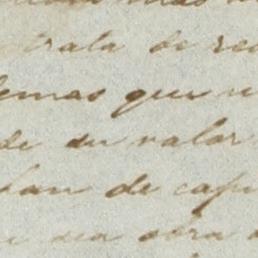 trata de rec
lemas que u
de su valor
han de capi
sea obra